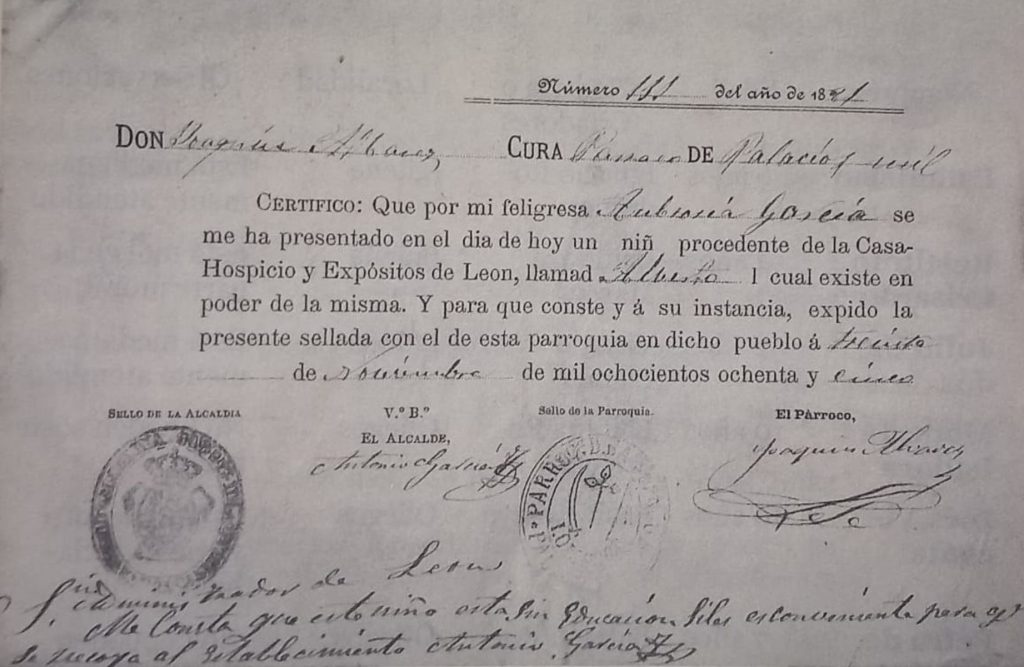 Número 111 del año de 1881
DON Joaquin Albarez CURA Parroco DE Palacio
CERTIFICO: Que por mi feligresa Ambrosia García se
me ha presentado en el dia de hoy un niñ procedente de la Casa-
Hospicio y Expósitos de Leon, llamad Alberto l cual existe en
poder de la misma. Y para que conste y á su instancia, expido la
presente sellada con el de esta parroquia en dicho pueblo á treinta
de Noviembre de mil ochocientos ochenta y cinco
SELLO DE LA ALCALDIA V.º B.º Sello de la Parroquia. El Párroco,
EL ALCALDE,
Antonio García Joaquin Alvarez
PARROQ.
de Leon
Me Consta que este niño esta sin Educación es conveniente para
se recoja al Establecimiento Antonio García